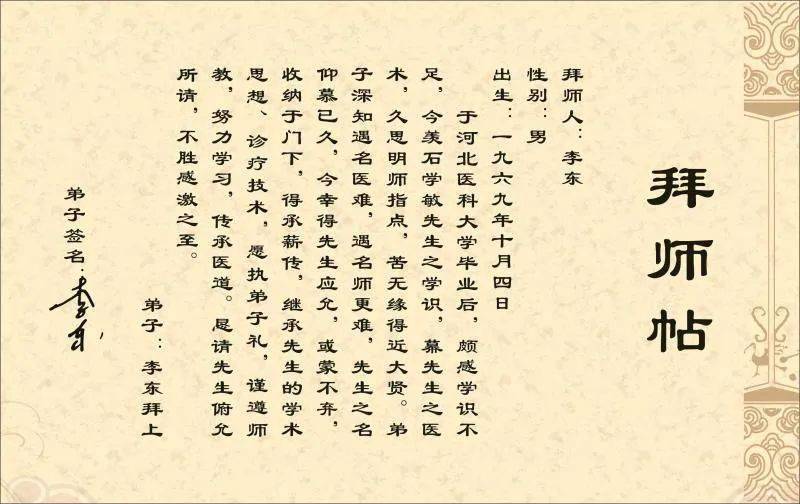 拜师帖
拜师人：李东
性别：男
出生：一九六九年十月四日
于河北医科大学毕业后，颇感学识不
足，今羡石学敏先生之学识，慕先生之医
术，久思明师指点，苦无缘得近大贤。弟
子深知遇名医难，遇名师更难，先生之名
仰慕已久，今幸得先生应允，或蒙不弃，
收纳于门下，得承薪传，继承先生的学术
思想、诊疗技术，愿执弟子礼，谨遵师
教，努力学习，传承医道。恳请先生俯允
所请，不胜感激之至。
弟子：李东拜上
弟子签名：李东